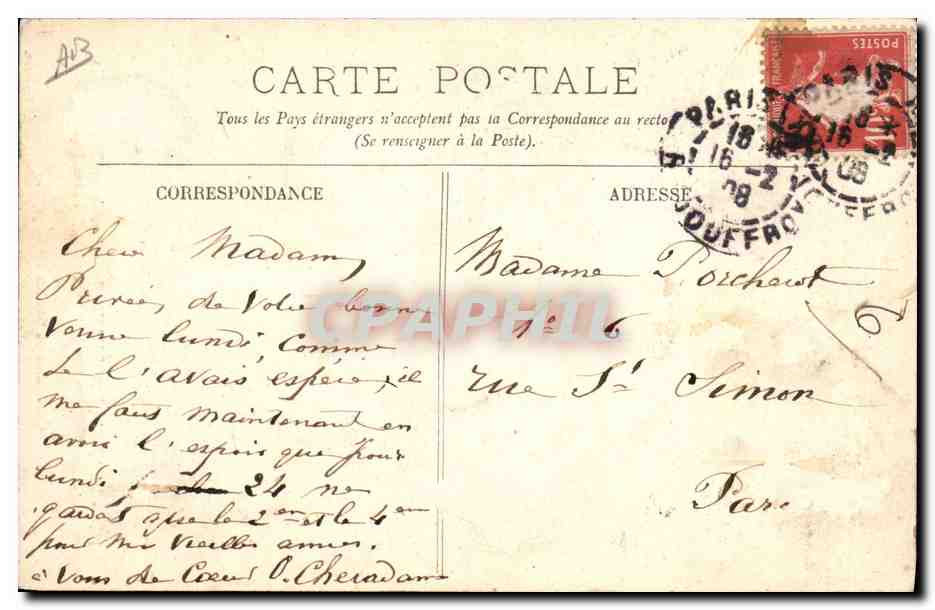 AB
CARTE POSTALE
Tous les Pays étrangers n'acceptent pas la Correspondance au recto
(Se renseigner à la Poste).
CORRESPONDANCE
Chère Madame,
Privée de votre bonne
venue lundi, comme
je l'avais espéré, il
me faut maintenant en
avoir l'espoir que pour
lundi 24 ne
gardant que le 2en et le 4en
pour mes vieilles amies.
à vous de Cœur O. Cheradame
ADRESSE
Madame Porcherot
No 6
rue St Simon
Paris
6
POSTES
10
PARIS
18
16 -2
08
PARIS
16
08
CPAPHIL